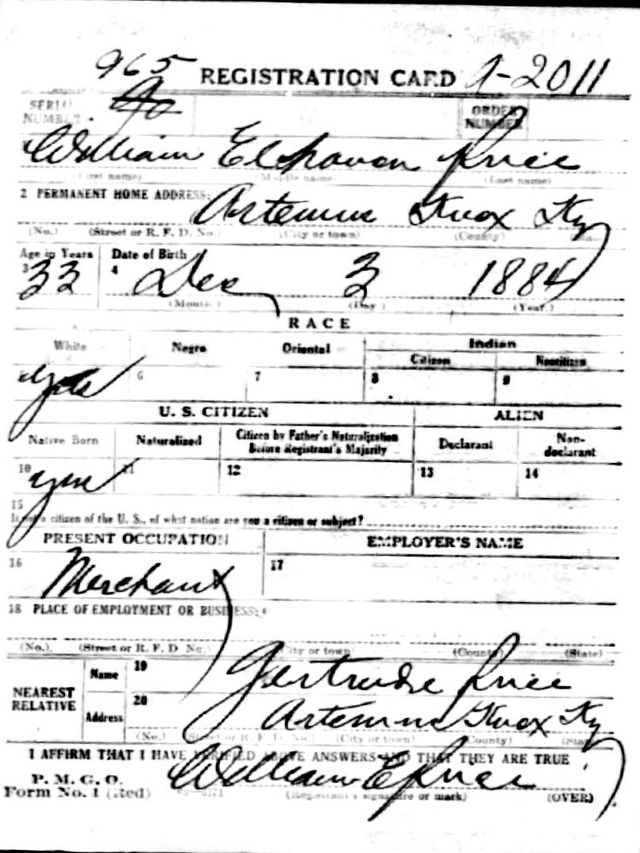 965 REGISTRATION CARD 1-2011
SERIAL NUMBER
ORDER NUMBER
William Elhanon Price
(First name) (Middle name) (Last name)
2 PERMANENT HOME ADDRESS:
Artemus Knox Ky
(No.) (Street or R. F. D. No.) (City or town) (County) (State)
Age in Years Date of Birth
3 33 4 Dec 3 1884
(Month) (Day) (Year)
RACE
White Negro Oriental Indian
Citizen Noncitizen
yes 6 7 8 9
U. S. CITIZEN ALIEN
Native Born Naturalized Citizen by Father's Naturalization Before Registrant's Majority Declarant Non-declarant
10 yes 11 12 13 14
15
If not a citizen of the U. S., of what nation are you a citizen or subject?
PRESENT OCCUPATION EMPLOYER'S NAME
16 Merchant 17
18 PLACE OF EMPLOYMENT OR BUSINESS:
(No.) (Street or R. F. D. No.) (City or town) (County) (State)
NEAREST RELATIVE
Name 19 Gertrude Price
Address 20 Artemus Knox Ky
(No.) (Street or R. F. D. No.) (City or town) (County) (State)
I AFFIRM THAT I HAVE VERIFIED ABOVE ANSWERS AND THAT THEY ARE TRUE
P. M. G. O.
Form No. 1 (Red) William E Price
(Registrant's signature or mark) (OVER)